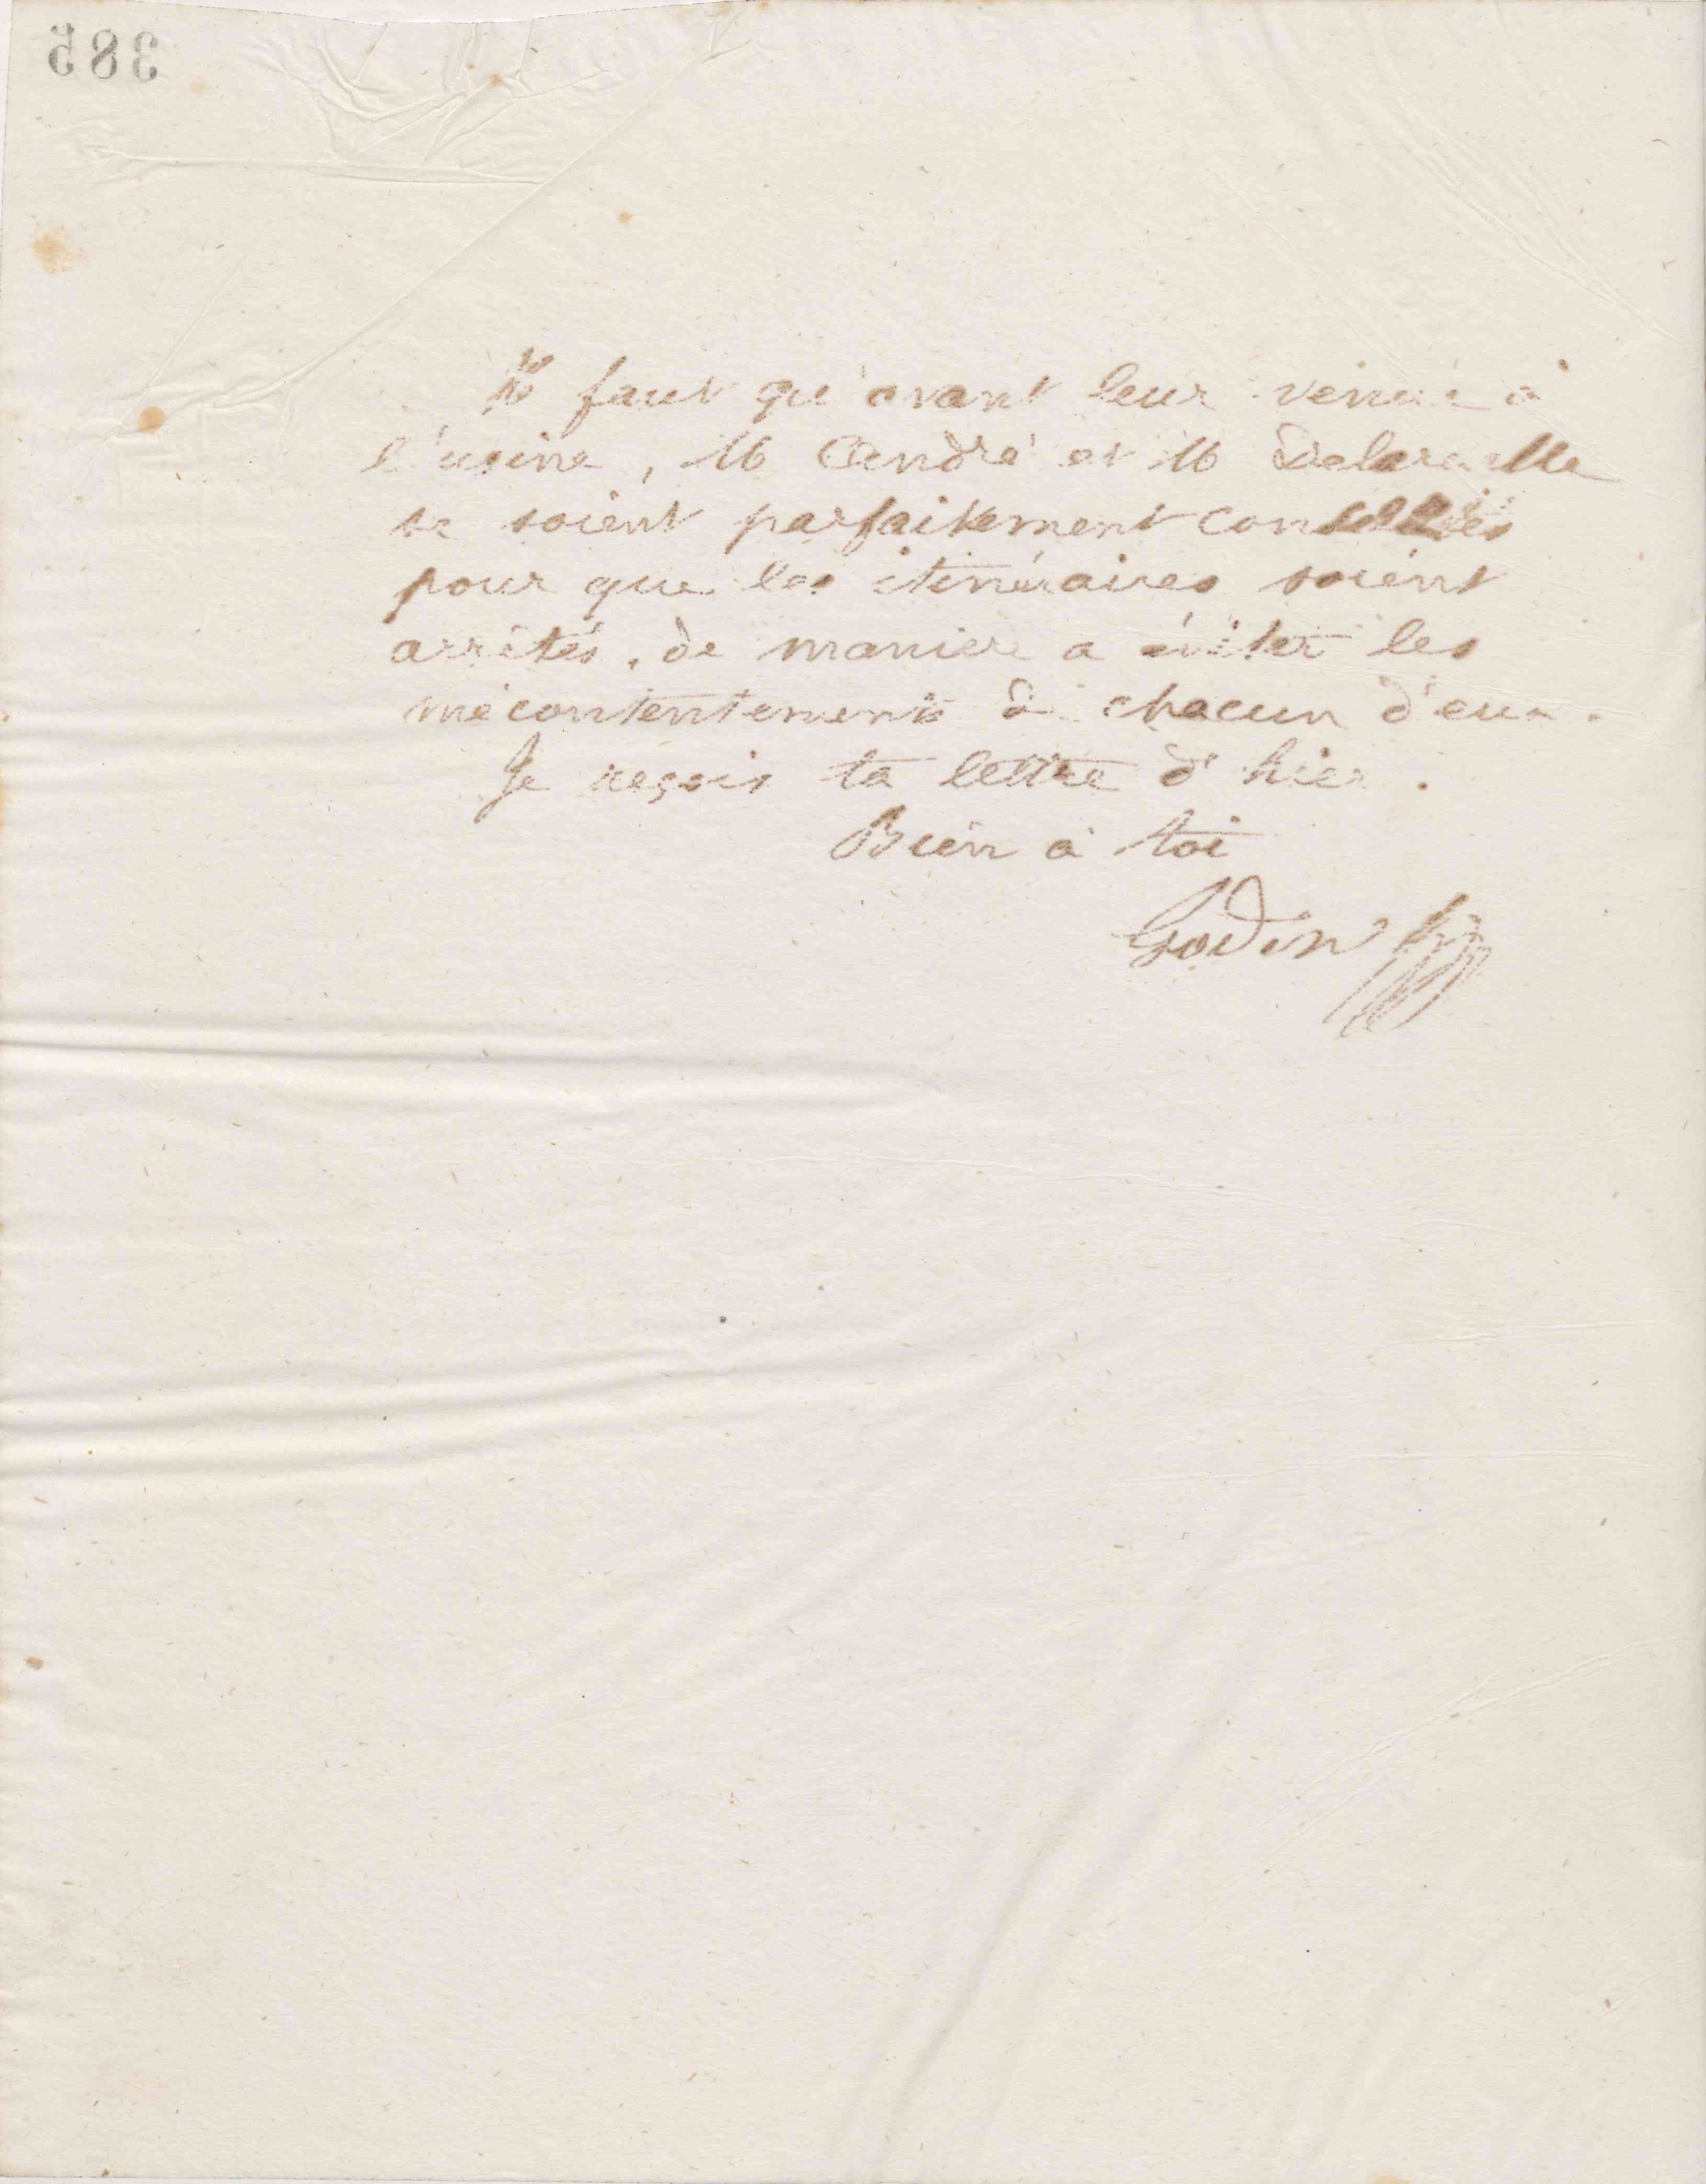 385
Il faut qu'avant leur venue à
l'usine, M André et M
se soient parfaitement consultés
pour que les itinéraires soient
arrêtés, de manière a éviter les
mécontentements de chacun d'eux.
Je reçois ta lettre d'hier.
Bien à toi
Godin